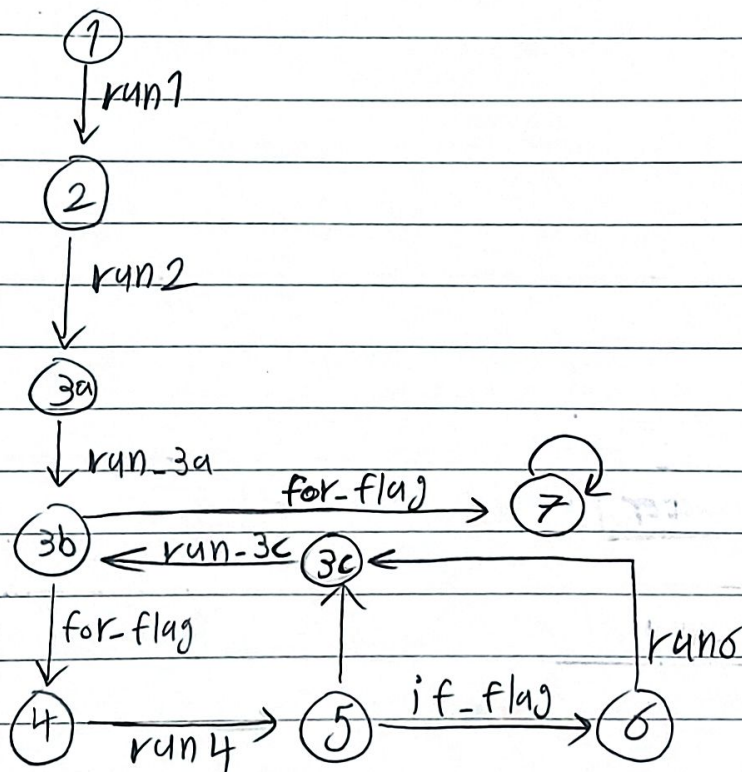 1
run1
2
run2
3a
run_3a
for_flag
7
3b
run_3c
3c
for_flag
run6
4
run4
5
if_flag
6